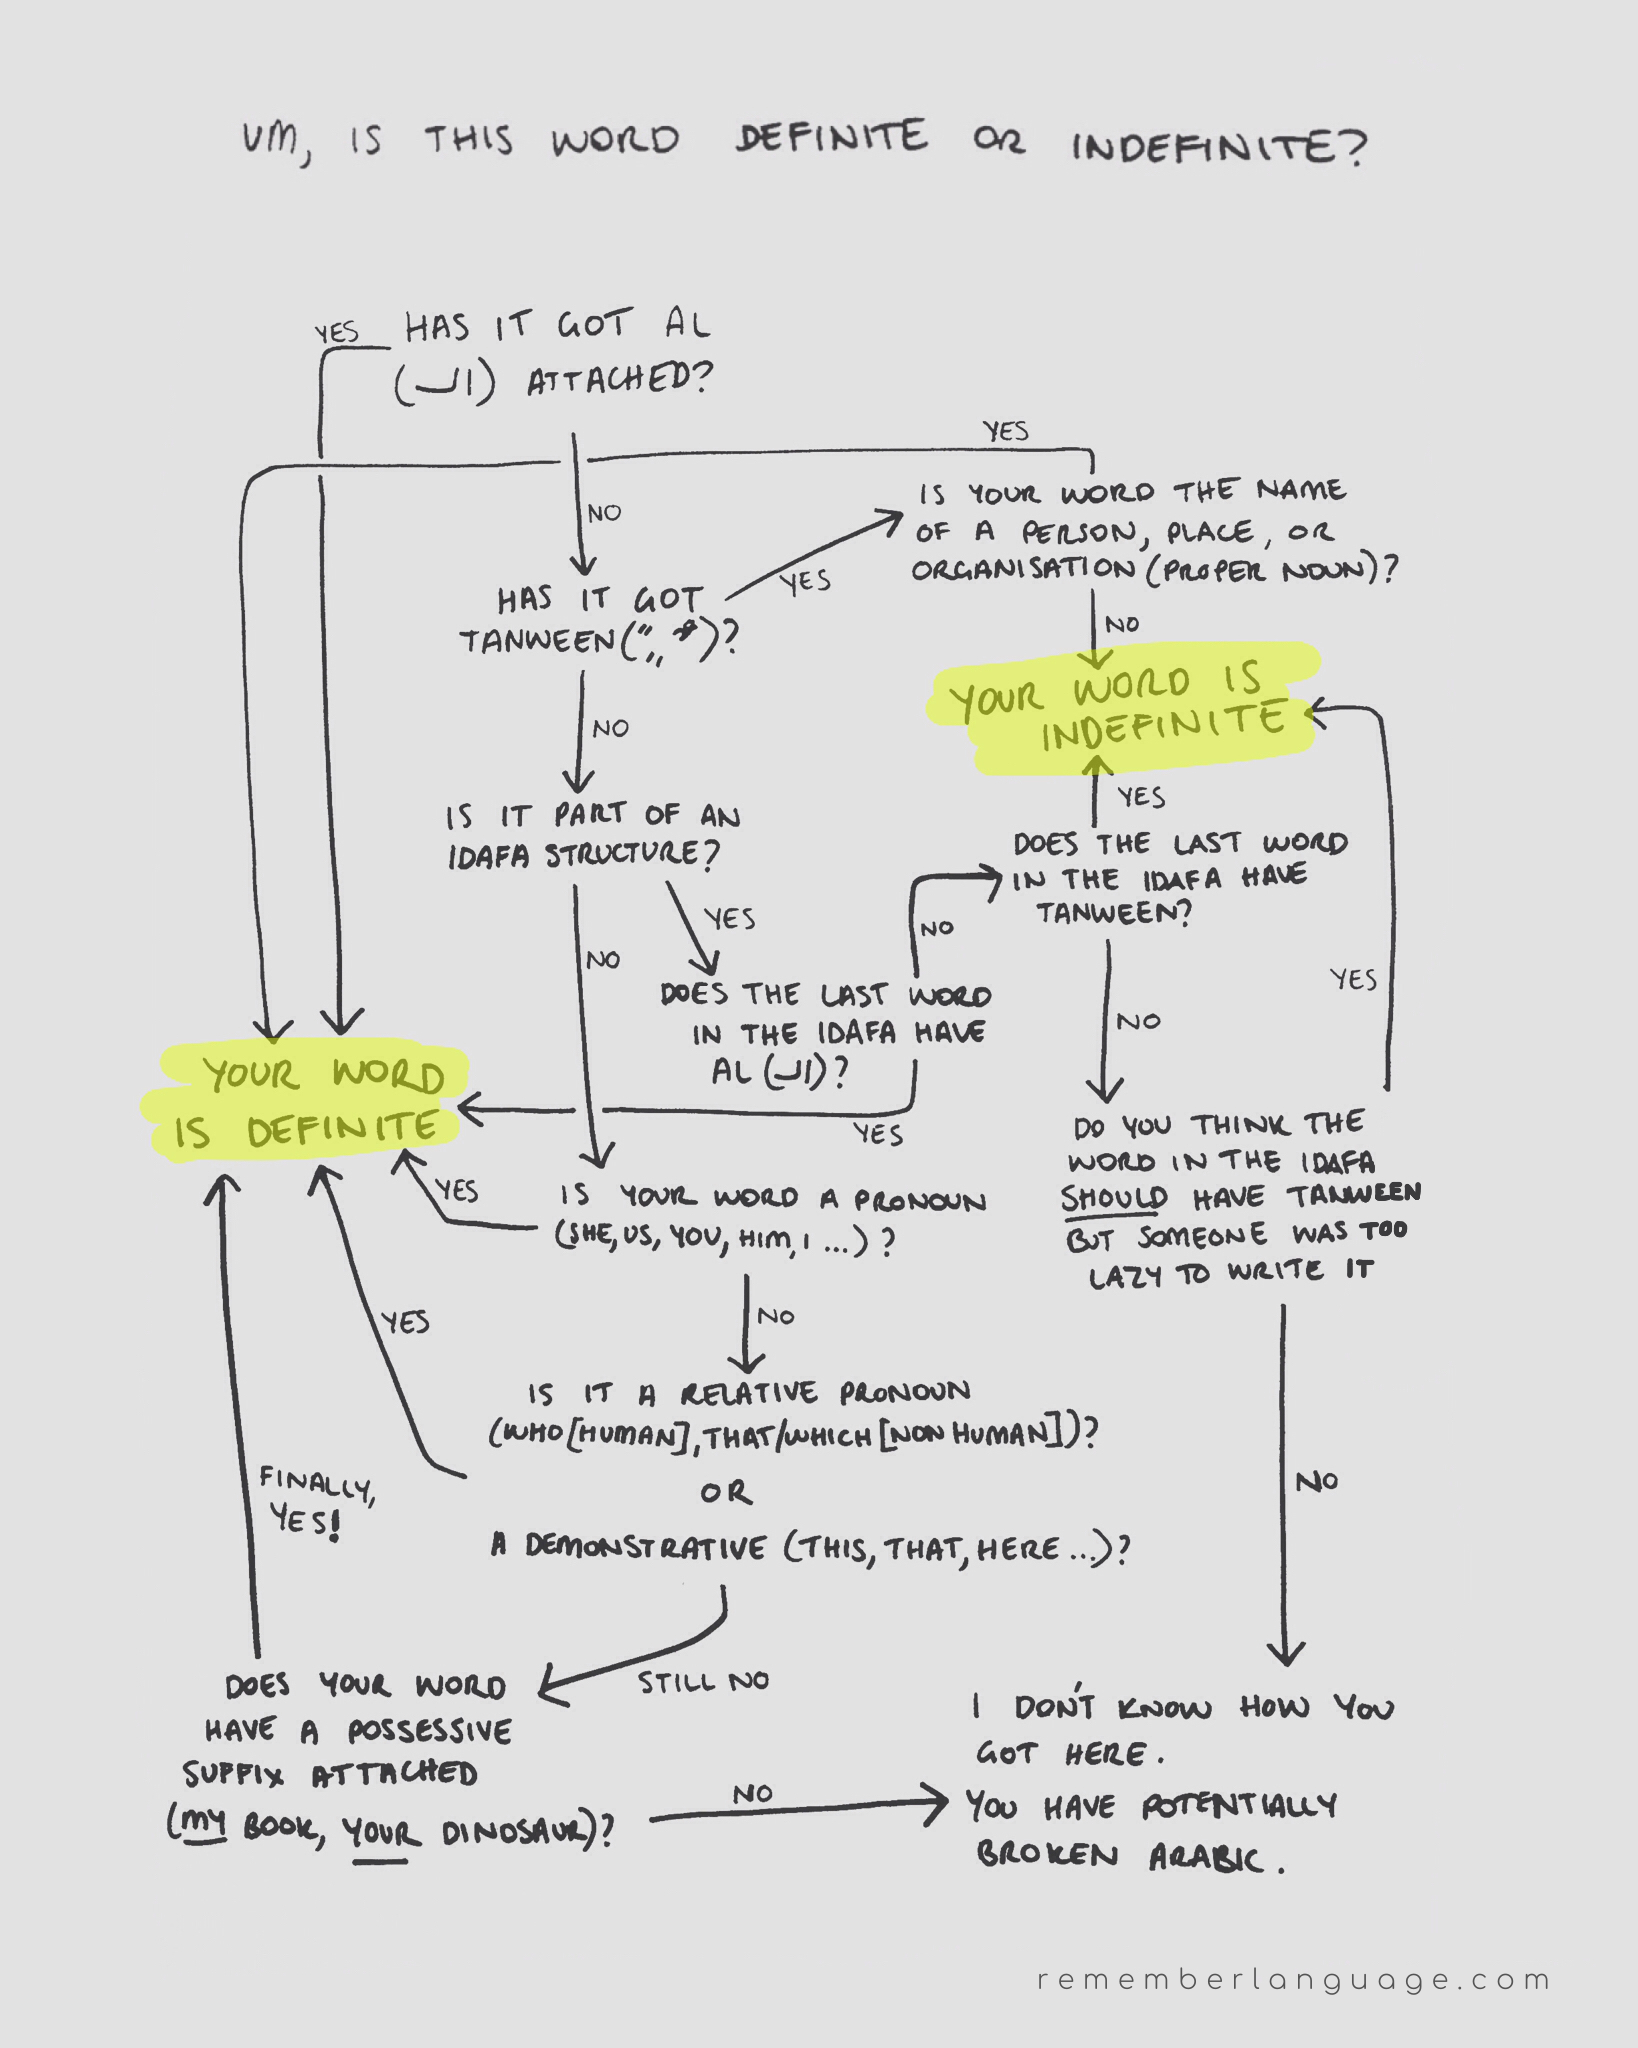 UM, IS THIS WORD DEFINITE OR INDEFINITE?
YES
HAS IT GOT AL
(الـ) ATTACHED?
YES
NO
IS YOUR WORD THE NAME
OF A PERSON, PLACE, OR
ORGANISATION (PROPER NOUN)?
YES
HAS IT GOT
TANWEEN (ً ٍ ٌ)?
NO
YOUR WORD IS
INDEFINITE
NO
IS IT PART OF AN
IDAFA STRUCTURE?
YES
DOES THE LAST WORD
IN THE IDAFA HAVE
TANWEEN?
YES
NO
NO
YES
DOES THE LAST WORD
IN THE IDAFA HAVE
AL (الـ)?
NO
YOUR WORD
IS DEFINITE
YES
DO YOU THINK THE
WORD IN THE IDAFA
SHOULD HAVE TANWEEN
BUT SOMEONE WAS TOO
LAZY TO WRITE IT
YES
IS YOUR WORD A PRONOUN
(SHE, US, YOU, HIM, I ...) ?
YES
NO
IS IT A RELATIVE PRONOUN
(WHO [HUMAN], THAT/WHICH [NON HUMAN])?
OR
A DEMONSTRATIVE (THIS, THAT, HERE ...)?
FINALLY,
YES!
NO
STILL NO
DOES YOUR WORD
HAVE A POSSESSIVE
SUFFIX ATTACHED
(MY BOOK, YOUR DINOSAUR)?
NO
I DON'T KNOW HOW YOU
GOT HERE.
YOU HAVE POTENTIALLY
BROKEN ARABIC.
rememberlanguage.com